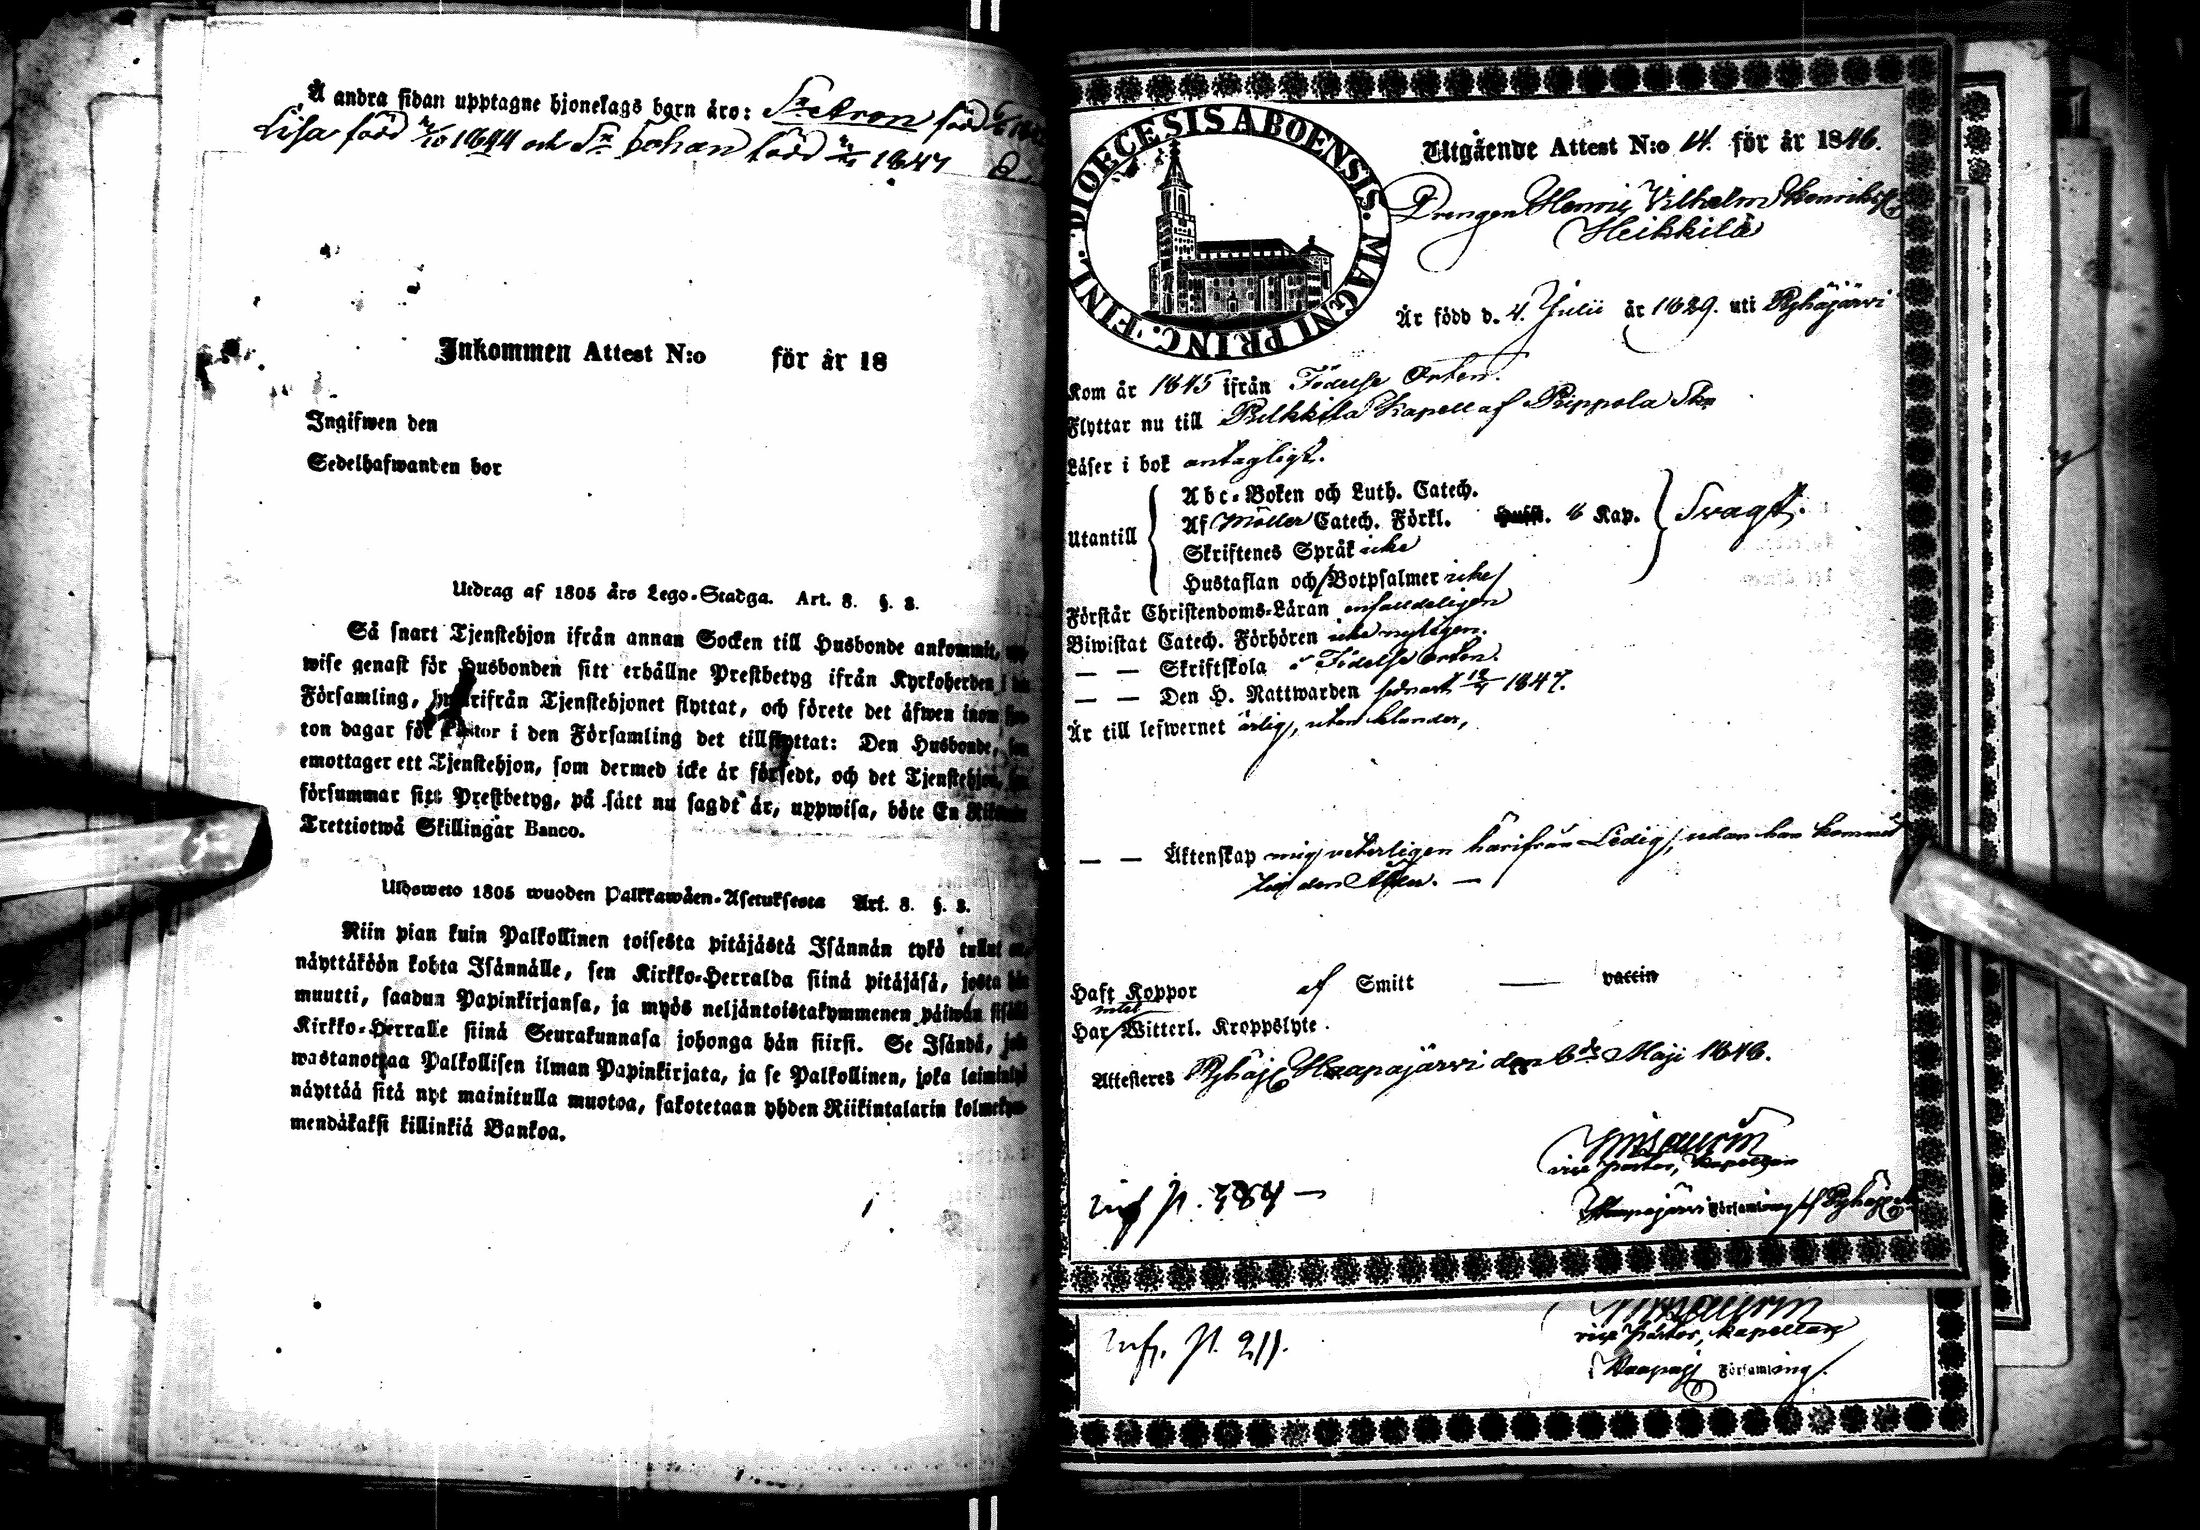 Å andra sidan upptagne hjonelags barn äro: Sn Aron född
Lisa född 1844 och Sn Johan född 1847
Inkommen Attest N:o för år 18
Ingifwen den
Sedelhafwanden bor
Utdrag af 1805 års Lego-Stadga. Art. 8. §. 3.
Så snart Tjenstehjon ifrån annan Socken till Husbonde ankommit,
wise genast för Husbonden sitt erhållne Prestbetyg ifrån Kyrkoherden i
Församling, hwarifrån Tjenstehjonet flyttat, och förete det äfwen inom
ton dagar för Pastor i den Församling det tillflyttat: Den Husbonde,
emottager ett Tjenstehjon, som dermed icke är försedt, och det Tjenstehjon,
försummar sitt Prestbetyg, på sätt nu sagdt är, uppwisa, böte En
Trettiotwå Skillingar Banco.
Ulosweto 1805 wuoden Palkkawäen-Asetuksesta Art. 8. §. 3.
Niin pian kuin Palkollinen toisesta pitäjästä Isännän tykö tullut
näyttäköön kohta Isännälle, sen Kirkko-Herralda siinä pitäjäsä, josta hän
muutti, saadun Papinkirjansa, ja myös neljäntoistakymmenen päiwän
Kirkko-Herralle siinä Seurakunnasa johonga hän siirsi. Se Isändä,
wastanottaa Palkollisen ilman Papinkirjata, ja se Palkollinen, joka
näyttää sitä nyt mainitulla muotoa, sakotetaan yhden Riikintalarin
mendäkaksi killinkiä Bankoa.
DIOECESIS ABOENSIS. MAGNI PRINC. FINL.
Utgående Attest N:o 14. för år 1848.
Drengen Henric Vilhelm Henrikss
Heikkilä
Är född d. 4. Julii år 1829. uti Pyhäjärvi
Kom år 1845 ifrån Födelse Orten.
Flyttar nu till Pulkkila Kapell af Piippola Skn
Läser i bok antagligt.
Utantill
Abc-Boken och Luth. Catech.
Af Möller Catech. Förkl. 6 Kap. Svagt.
Skriftenes Språk icke
Hustaflan och Botpsalmer icke
Förstår Christendoms-Läran enfalldeligen
Biwistat Catech. Förhören icke nyligen.
— — Skriftskola i Födelse orten.
— — Den H. Nattwarden sednast 1847.
Är till lefwernet ärlig, utan klander,
— — Äktenskap mig veterligen härifrån Ledig, sedan han kommit
till den Ålder. —
Haft Koppor af Smitt — vaccin
intet
Har Witterl. Kroppslyte.
Attesteres Pyhäj: Haapajärvi den 6de Maji 1848.
vice pastor, Kapellan
Haapajärvi Församling af Pyhäj:
p. 384 —
p. 211.
vice pastor, kapellan
Haapaj: Församling.